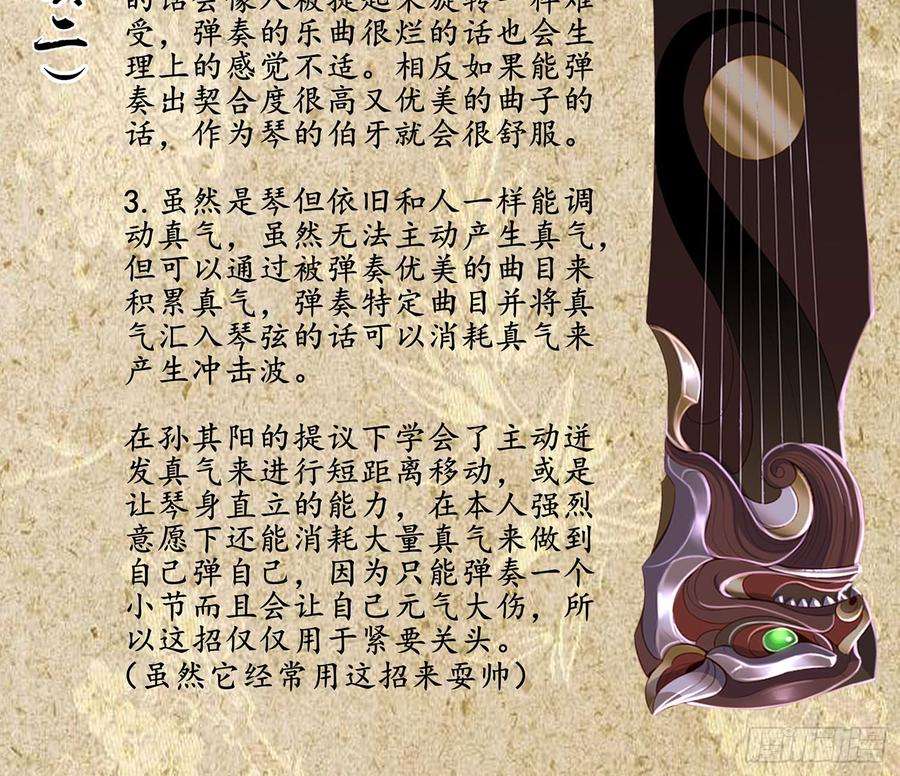 二)
的话会像人被提起来旋转一样难
受，弹奏的乐曲很烂的话也会生
理上的感觉不适。相反如果能弹
奏出契合度很高又优美的曲子的
话，作为琴的伯牙就会很舒服。
3. 虽然是琴但依旧和人一样能调
动真气，虽然无法主动产生真气，
但可以通过被弹奏优美的曲目来
积累真气，弹奏特定曲目并将真
气汇入琴弦的话可以消耗真气来
产生冲击波。
在孙其阳的提议下学会了主动迸
发真气来进行短距离移动，或是
让琴身直立的能力，在本人强烈
意愿下还能消耗大量真气来做到
自己弹自己，因为只能弹奏一个
小节而且会让自己元气大伤，所
以这招仅仅用于紧要关头。
(虽然它经常用这招来耍帅)